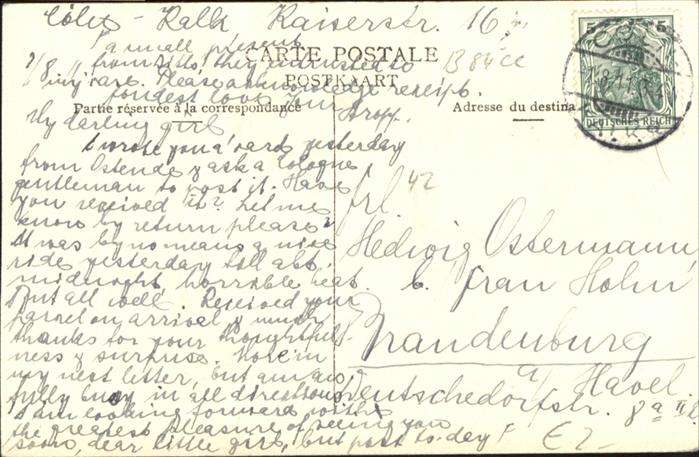 Cöln - Kalk Kaiserstr. 16
a small present
from to they intrusted to
my care. Please acknowledge receipt.
fondest love, your
CARTE POSTALE
POSTKAART
Partie réservée à la correspondance
Adresse du destina
DEUTSCHES REICH
5 5
My darling girl
I wrote you a card yesterday
from Ostende & ask a Cologne
gentleman to post it. Have
you received it? Let me
know by return please?
It was by no means a nice
ride yesterday till abt.
midnight, horrible heat.
But all well. Received your
parcel on arrival & much
thanks for your thoughtful-
ness & surprise. More in
my next letter, but am aw-
fully busy in all directions.
I am looking forward with
the greatest pleasure of seeing you
soon, dear little girl, but post to-day!
42
Frl.
Hedwig Ostermann,
b. Frau Hohn
Brandenburg
a/ Havel.
Deutschedorfstr. 8a II.